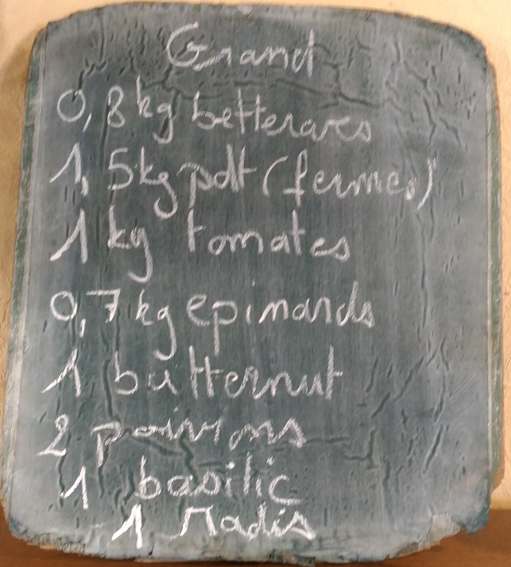 Grand
0,8kg betteraves
1,5kg pdt (fermes)
1 kg tomates
0,7kg epinards
1 butternut
2 poivrons
1 basilic
1 radis